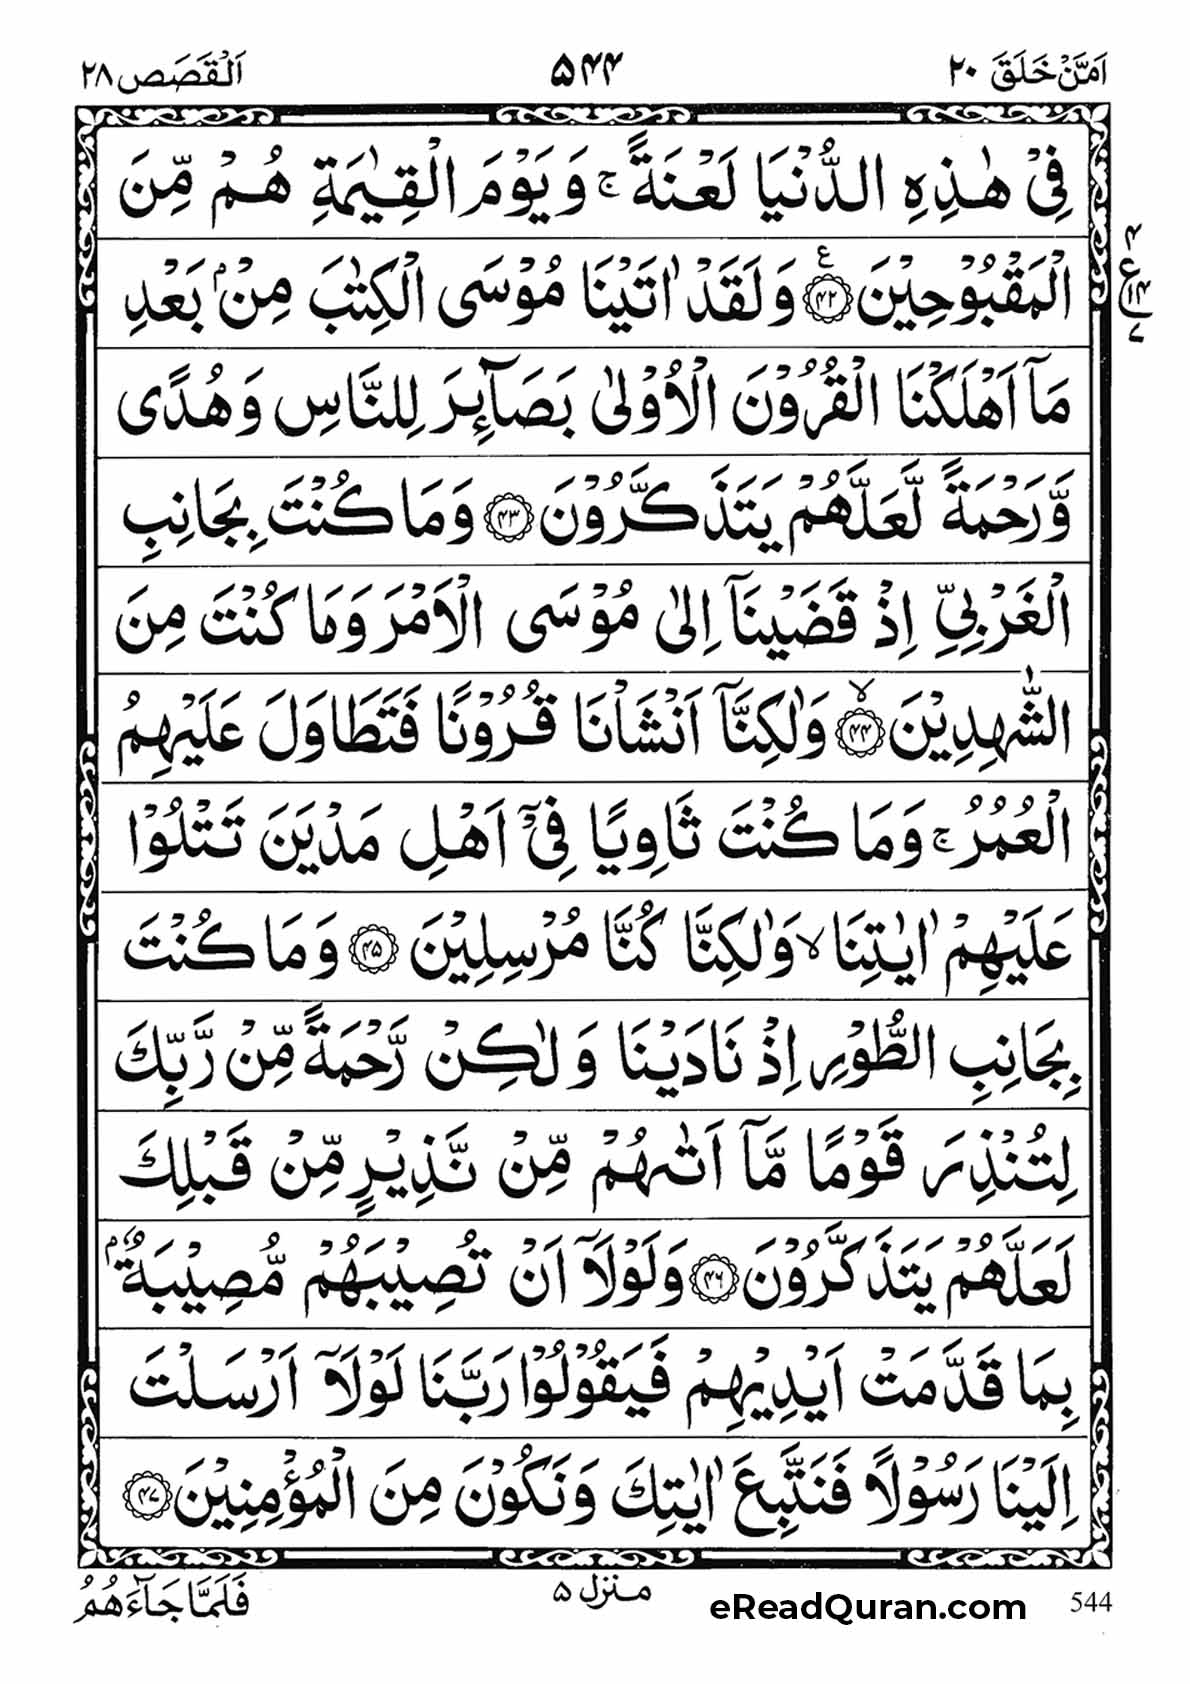 اَمَّنْ خَلَقَ ٢٠ ۵۴۴ اَلْقَصَص ٢٨
فِیْ هٰذِهِ الدُّنْیَا لَعْنَةً ۚ وَ یَوْمَ الْقِیٰمَةِ هُمْ مِّنَ
الْمَقْبُوْحِیْنَ ﴿۴۲﴾ ع وَ لَقَدْ اٰتَیْنَا مُوْسَی الْكِتٰبَ مِنْۢ بَعْدِ
مَاۤ اَهْلَكْنَا الْقُرُوْنَ الْاُوْلٰی بَصَآىِٕرَ لِلنَّاسِ وَ هُدًی
وَّ رَحْمَةً لَّعَلَّهُمْ یَتَذَكَّرُوْنَ ﴿۴۳﴾ وَ مَا كُنْتَ بِجَانِبِ
الْغَرْبِیِّ اِذْ قَضَیْنَاۤ اِلٰی مُوْسَی الْاَمْرَ وَ مَا كُنْتَ مِنَ
الشّٰهِدِیْنَ ﴿۴۴﴾ ۙ وَ لٰكِنَّاۤ اَنْشَاْنَا قُرُوْنًا فَتَطَاوَلَ عَلَیْهِمُ
الْعُمُرُ ۚ وَ مَا كُنْتَ ثَاوِیًا فِیْۤ اَهْلِ مَدْیَنَ تَتْلُوْا
عَلَیْهِمْ اٰیٰتِنَا ۙ وَ لٰكِنَّا كُنَّا مُرْسِلِیْنَ ﴿۴۵﴾ وَ مَا كُنْتَ
بِجَانِبِ الطُّوْرِ اِذْ نَادَیْنَا وَ لٰكِنْ رَّحْمَةً مِّنْ رَّبِّكَ
لِتُنْذِرَ قَوْمًا مَّاۤ اَتٰىهُمْ مِّنْ نَّذِیْرٍ مِّنْ قَبْلِكَ
لَعَلَّهُمْ یَتَذَكَّرُوْنَ ﴿۴۶﴾ وَ لَوْلَاۤ اَنْ تُصِیْبَهُمْ مُّصِیْبَةٌۢ
بِمَا قَدَّمَتْ اَیْدِیْهِمْ فَیَقُوْلُوْا رَبَّنَا لَوْلَاۤ اَرْسَلْتَ
اِلَیْنَا رَسُوْلًا فَنَتَّبِعَ اٰیٰتِكَ وَ نَكُوْنَ مِنَ الْمُؤْمِنِیْنَ ﴿۴۷﴾
فَلَمَّا جَآءَهُمُ
منزل ۵
eReadQuran.com
544